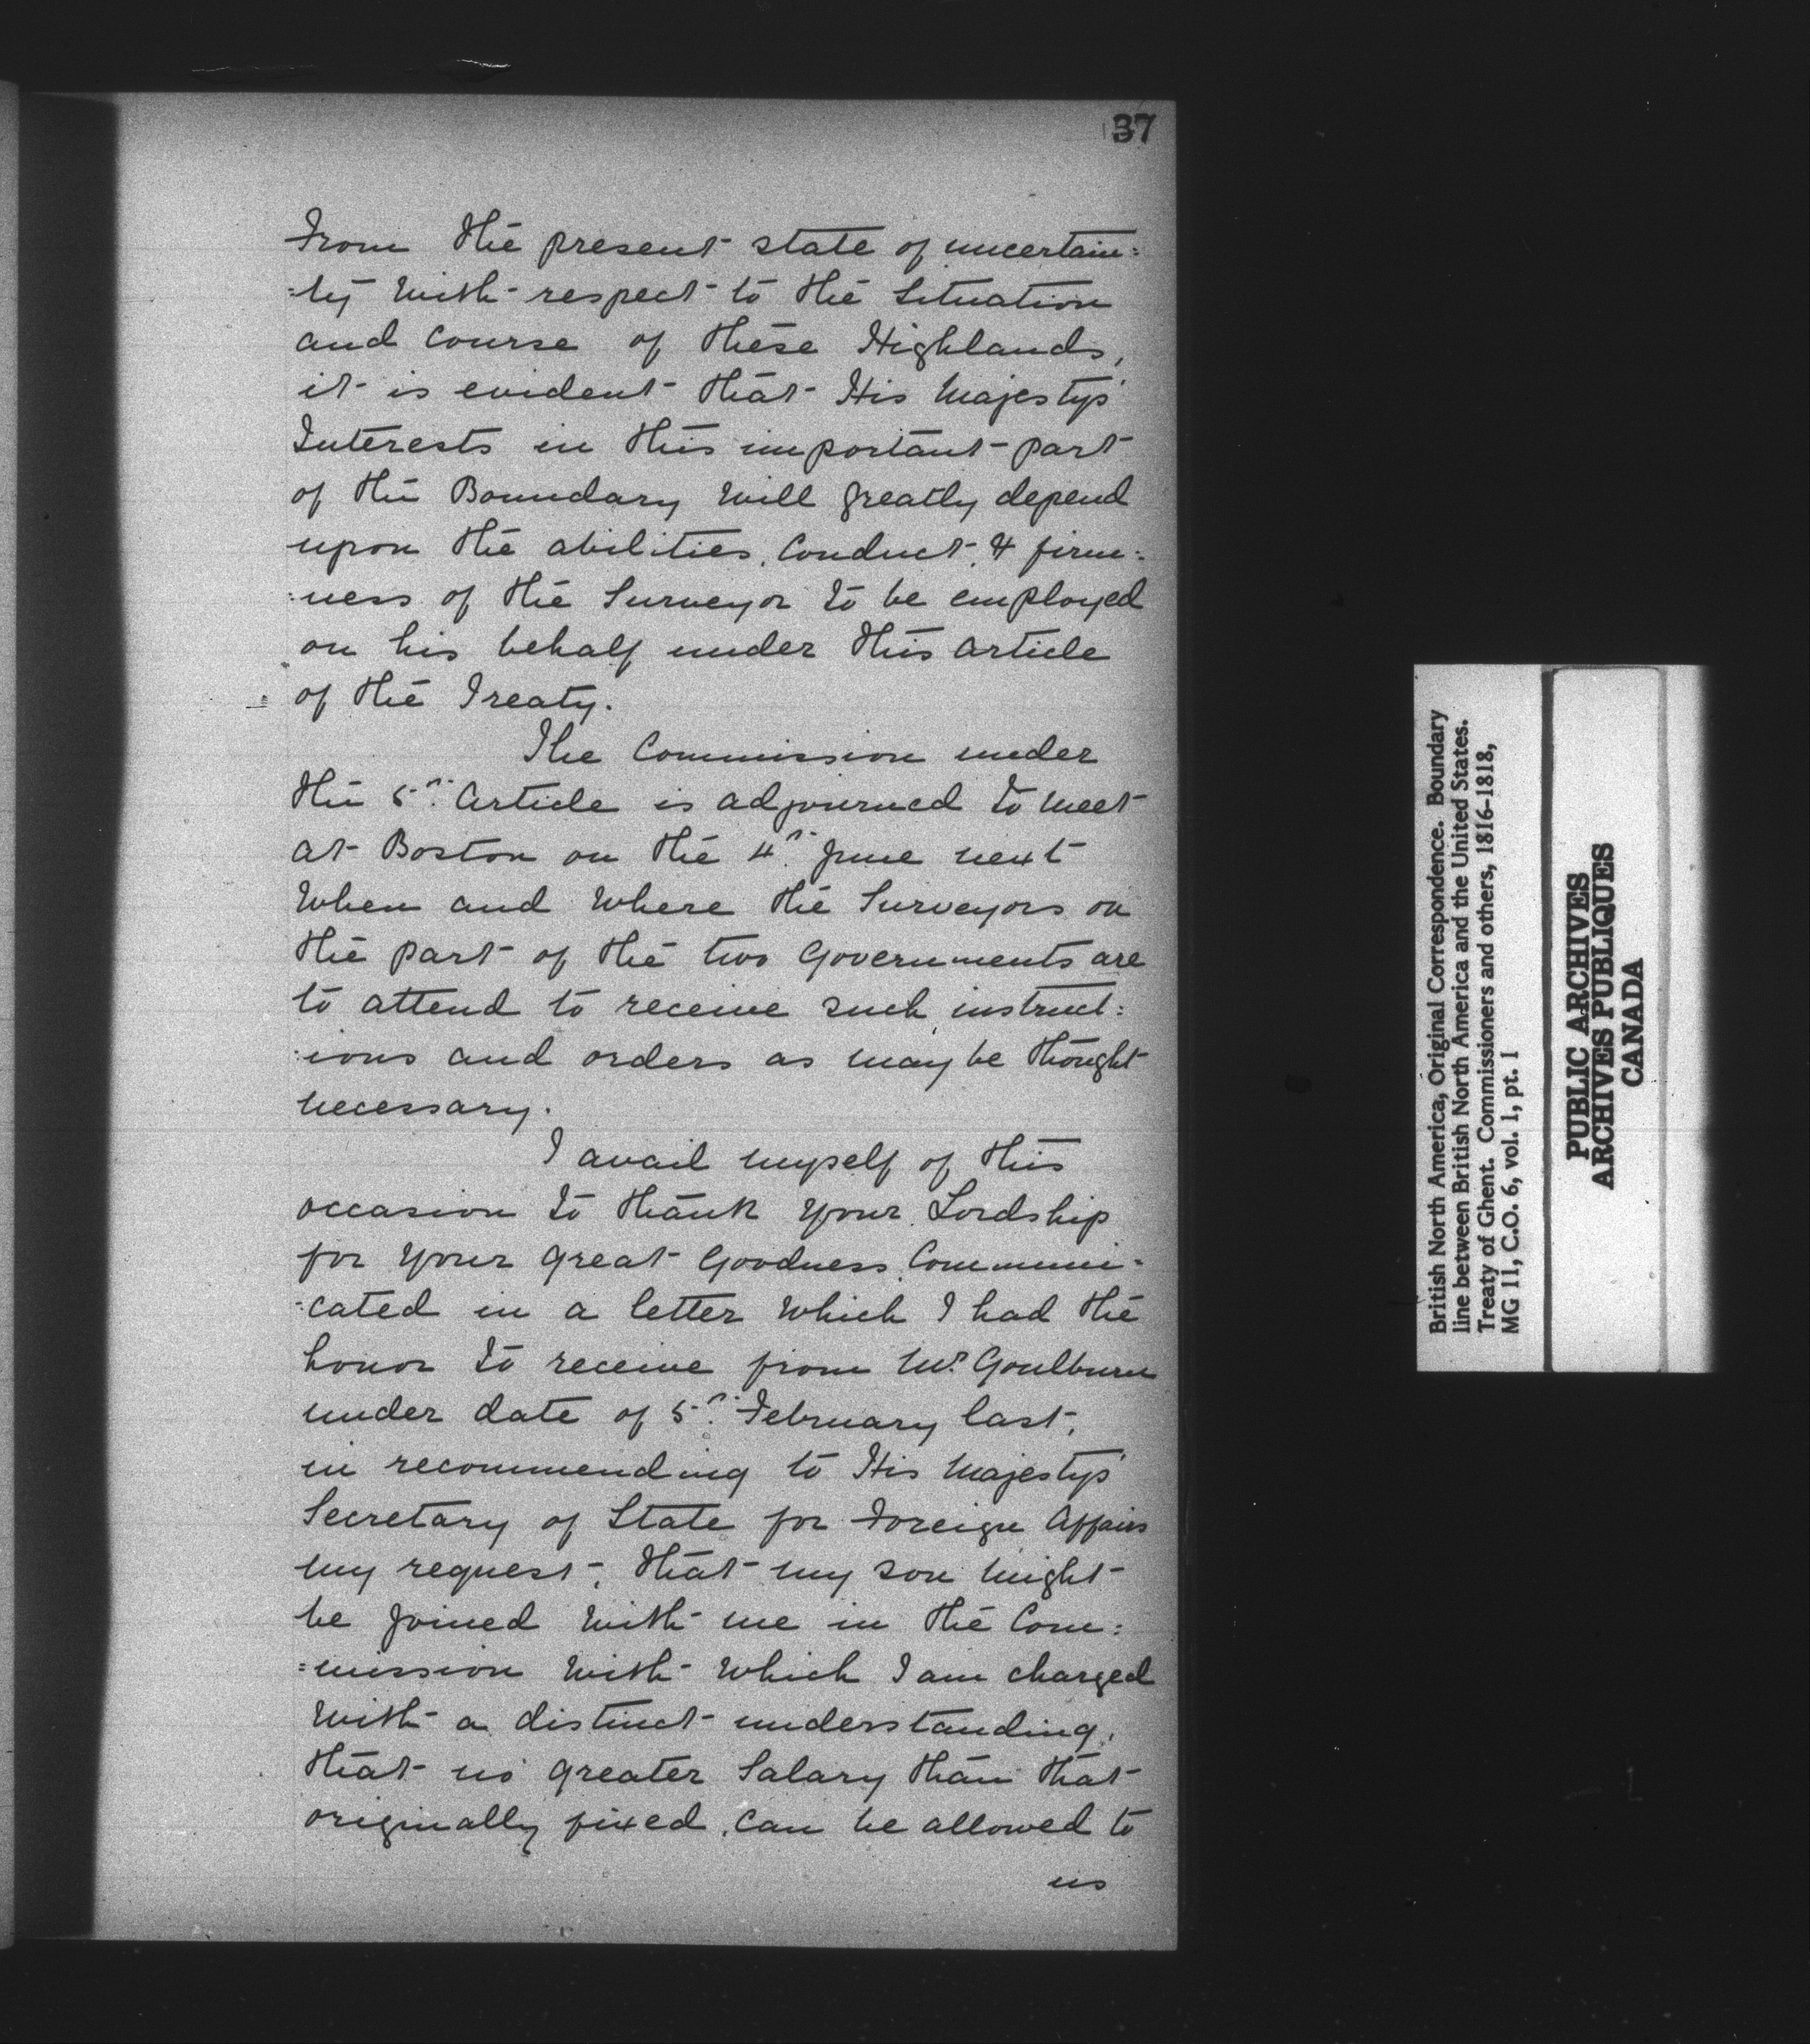 37
From the present state of uncertain:
:ty with respect to the Situation
and Course of these Highlands,
it is evident that His Majesty's
Interests in this important part
of the Boundary will greatly depend
upon the abilities, Conduct, & firm:
:ness of the Surveyor to be employed
on his behalf under this article
of the Treaty.
The Commission under
the 5th Article is adjourned to meet
at Boston on the 4th June next
When and Where the Surveyors on
the part of the two Governments are
to attend to receive such instruct:
:ions and orders as may be thought
necessary.
I avail myself of this
occasion to thank your Lordship
for your great Goodness Communi-
:cated in a letter which I had the
honor to receive from Mr. Goulburn
under date of 5th February last,
in recommending to His Majesty's
Secretary of State for Foreign Affairs
my request, that my son might
be joined with me in the Com:
:mission with which I am charged
with a distinct understanding,
that no greater Salary than that
originally fixed, can be allowed to
us
British North America, Original Correspondence. Boundary
line between British North America and the United States.
Treaty of Ghent. Commissioners and others, 1816-1818,
MG 11, C.O. 6, vol. 1, pt. 1
PUBLIC ARCHIVES
ARCHIVES PUBLIQUES
CANADA